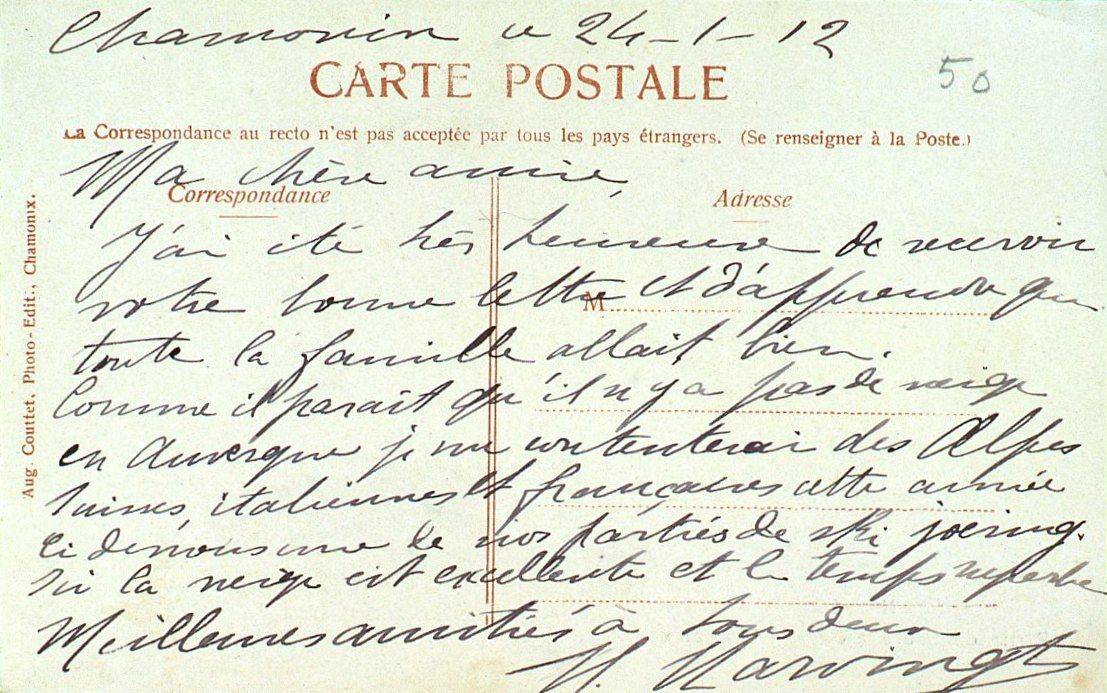 Chamonix le 24-1-12
50
CARTE POSTALE
La Correspondance au recto n'est pas acceptée par tous les pays étrangers. (Se renseigner à la Poste.)
Ma chère amie,
Correspondance
Adresse
J'ai été très heureuse de recevoir
votre bonne lettre et d'apprendre que
M
toute la famille allait bien.
Comme il parait qu'il n'y a pas de neige
en Auvergne je me contenterai des Alpes
suisses, italiennes et françaises cette année
ci dessous une de nos parties de ski joering.
Ici la neige est excellente et le temps superbe
Meilleures amitiés à tous deux
M. Marvingt
Aug. Couttet, Photo-Edit., Chamonix.